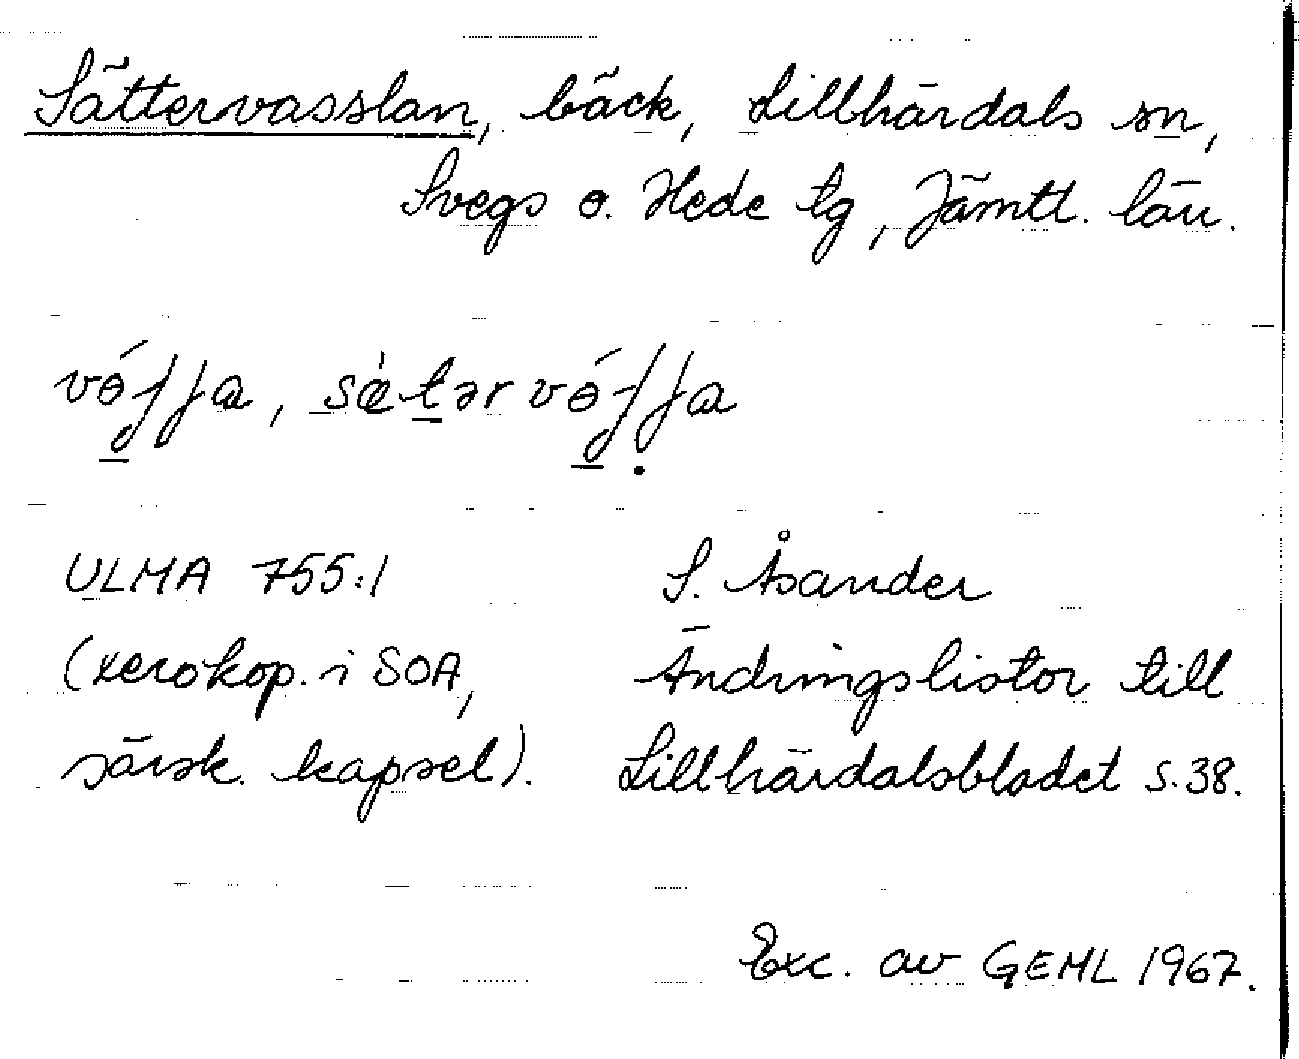 Sättervasslan, bäck, Lillhärdals sn,
Svegs o. Hede tg, Jämtl. län.
ULMA 755:1
S. Åsander
(xerokop. i SOA,
Ändringslistor till
särsk. kapsel).
Lillhärdalsbladet s. 38.
Exc. av GEML 1967.